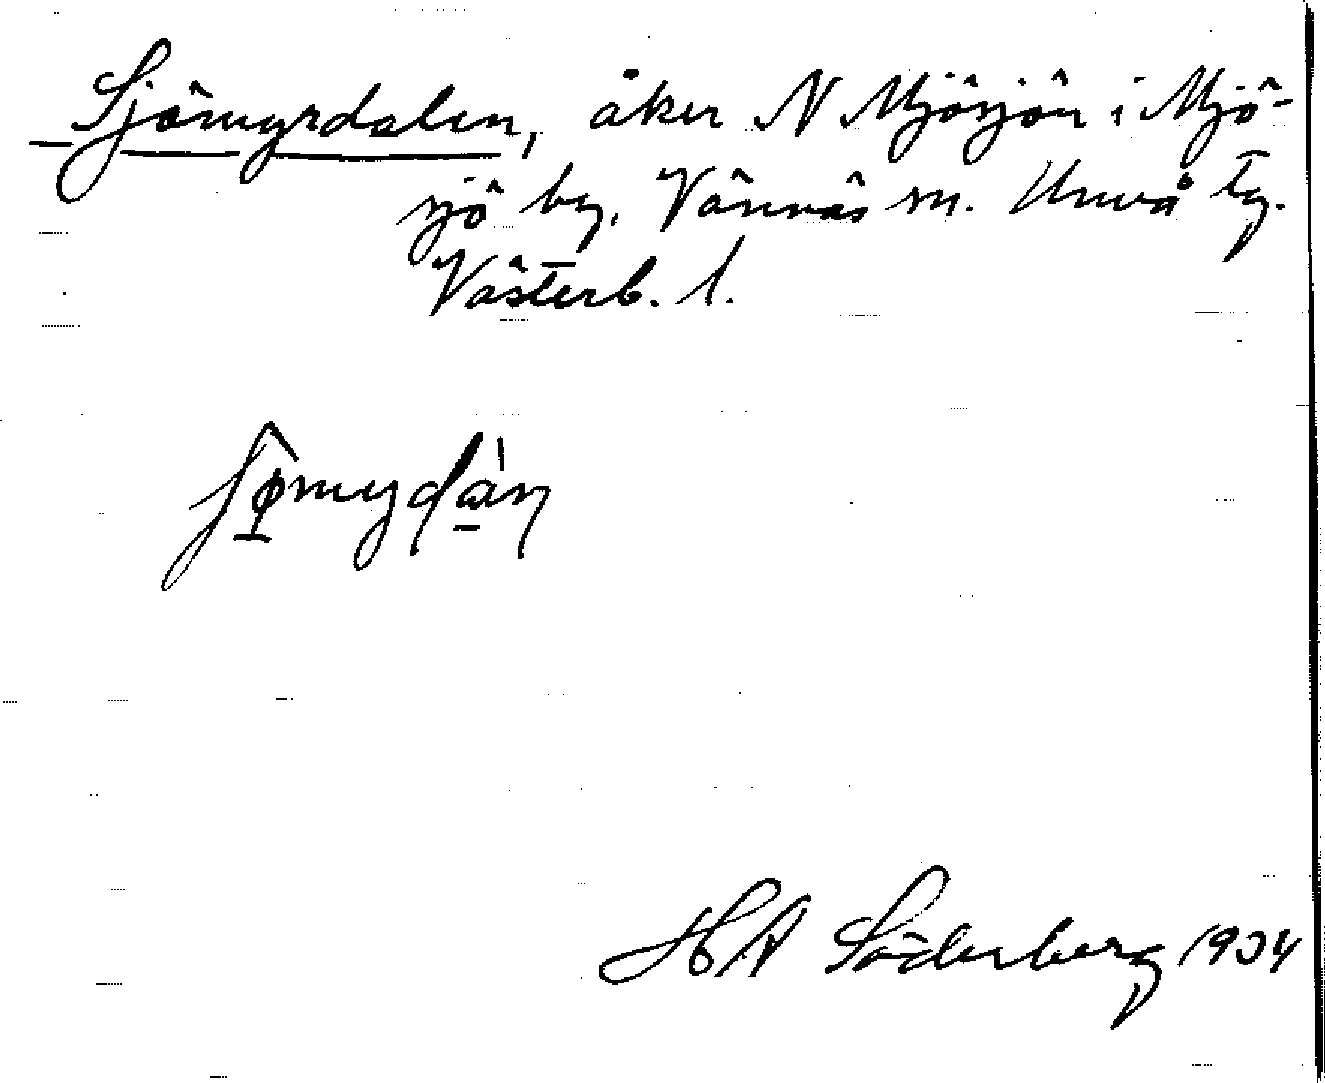 Sjömyrdalen, åker N Mjösjön i Mjö-
sjö by, Vännäs sn. Umeå tg.
Västerb. l.
H A Söderberg 1934